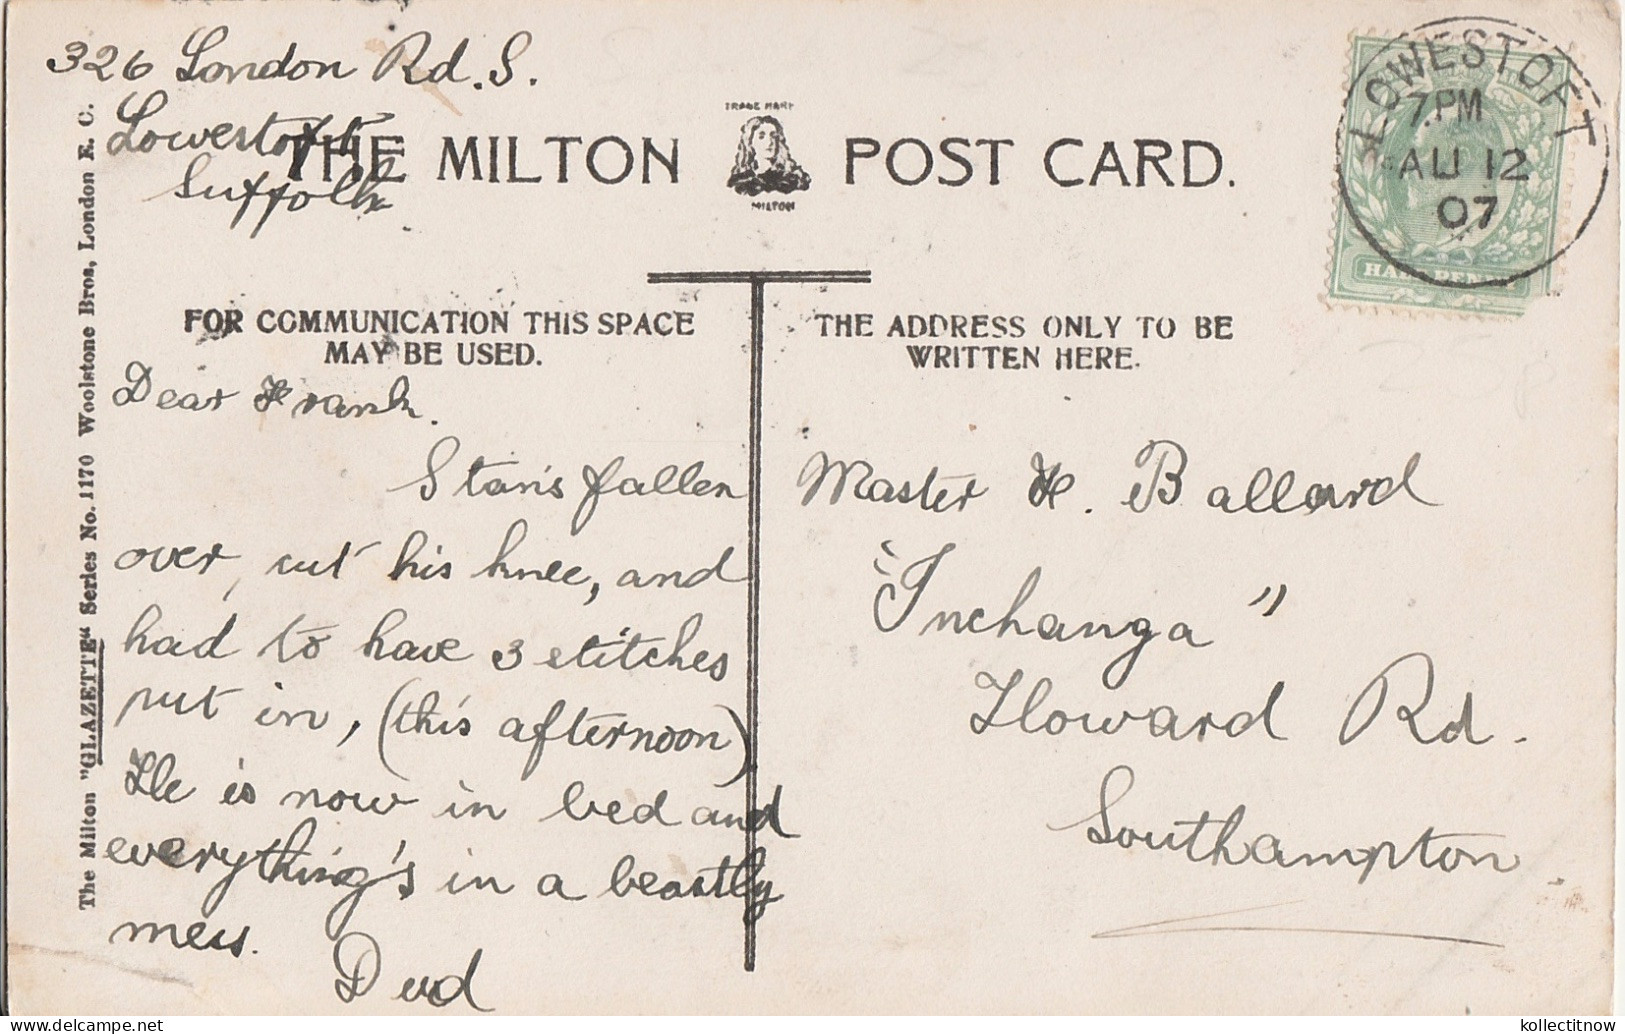 326 London Rd. S.
Lowestoft
Suffolk
THE MILTON POST CARD.
TRADE MARK
MILTON
LOWESTOFT
7.PM
AU 12
07
HALFPENNY
The Milton "GLAZETTE" Series No. 1170 Woolstone Bros, London E. C.
FOR COMMUNICATION THIS SPACE
MAY BE USED.
Dear Frank.
Stan's fallen
over, cut his knee, and
had to have 3 stitches
put in, (this afternoon)
He is now in bed and
everything's in a beastly
mess.
THE ADDRESS ONLY TO BE
WRITTEN HERE.
Master F. Ballard
"Inchanga"
Howard Rd.
Southampton
kollectitnow